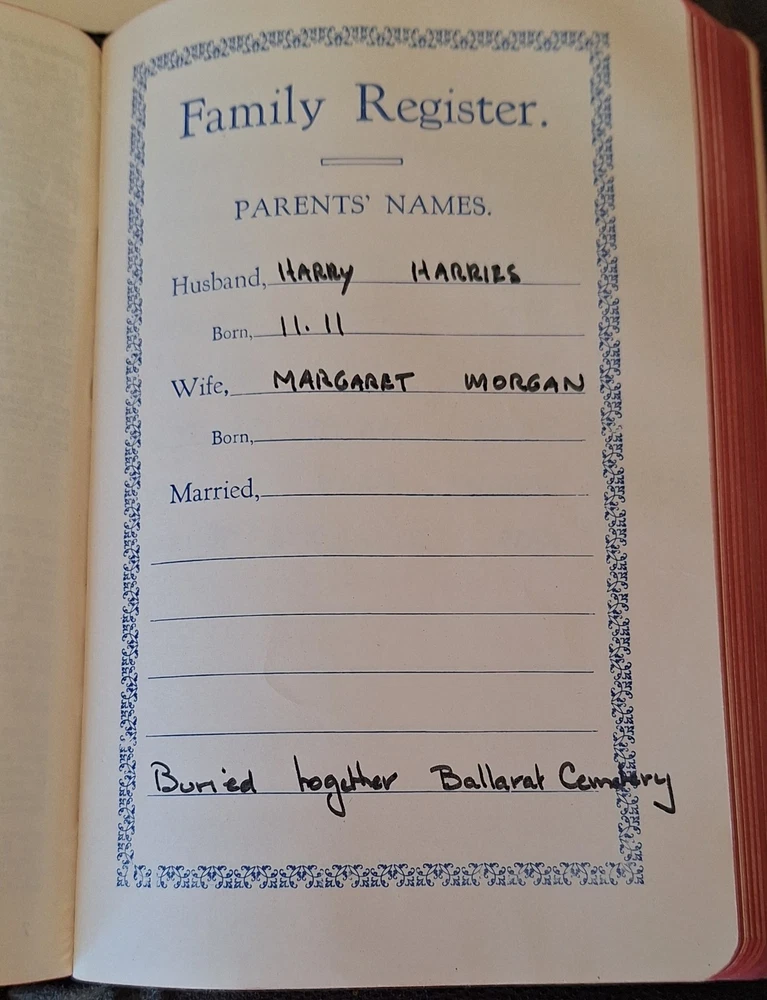 Family Register.
PARENTS' NAMES.
Husband, HARRY HARRIES
Born, 11.11
Wife, MARGARET MORGAN
Born,
Married,
Buried together Ballarat Cemetery